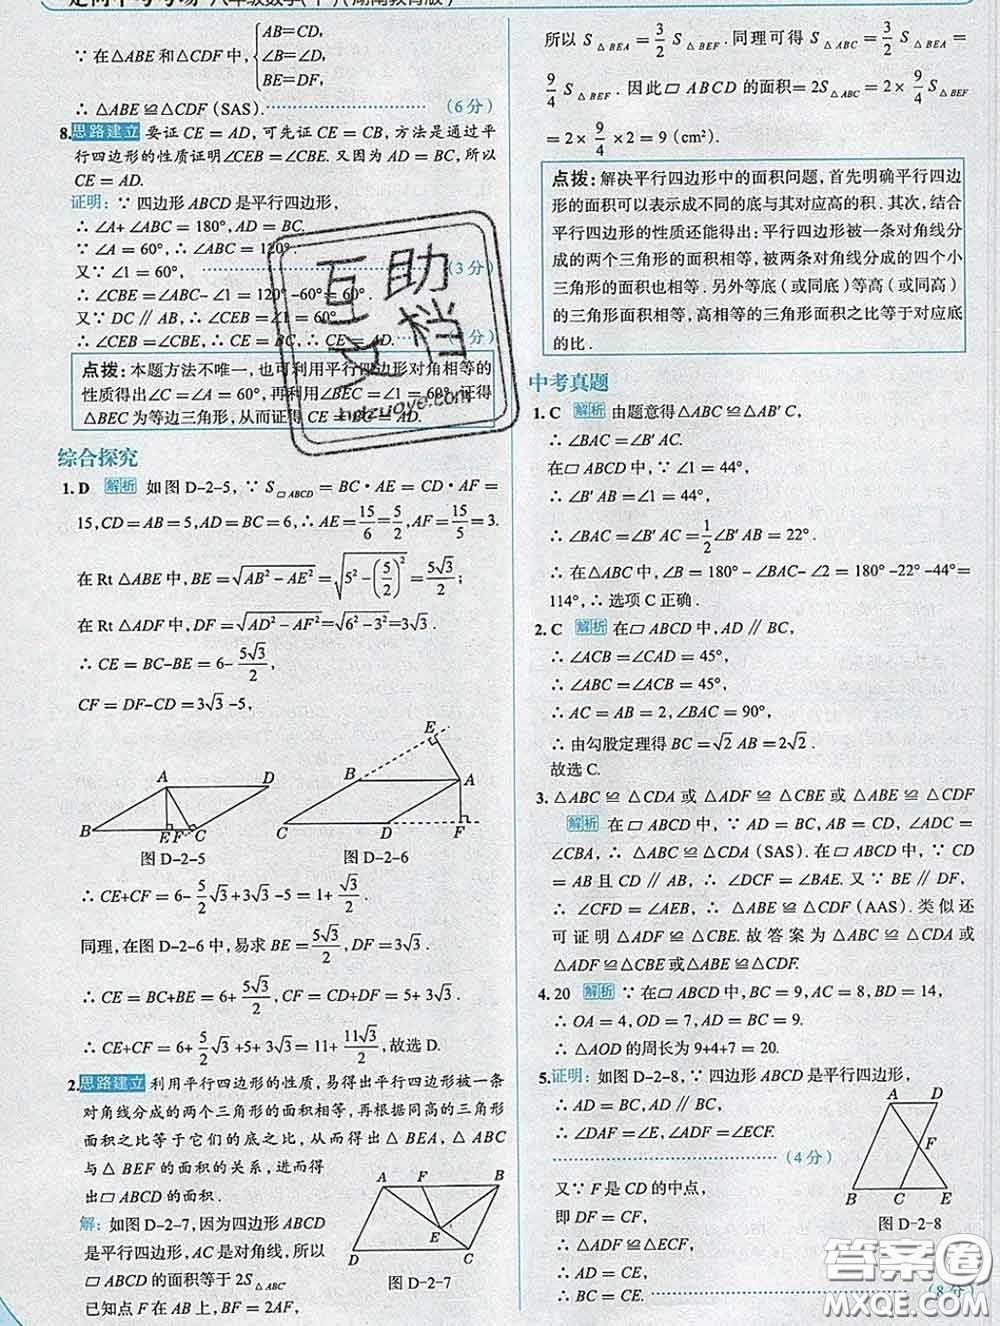 走向中考考场·八年级数学(下)(湖南教育版)
∵ 在△ABE和△CDF中{AB=CD,
∠B=∠D,
BE=DF,
∴ △ABE≌△CDF (SAS). (6分)
8.思路建立 要证CE=AD,可先证CE=CB,方法是通过平
行四边形的性质证明∠CEB=∠CBE.又因为AD=BC,所以
CE=AD.
证明:∵ 四边形ABCD是平行四边形,
∴ ∠A+∠ABC=180°,AD=BC.
∵ ∠A=60°,∴ ∠ABC=120°.
又∵ ∠1=60°, (3分)
∴ ∠CBE=∠ABC-∠1=120°-60°=60°.
又∵ DC∥AB,∴ ∠CEB=∠1=60°,
∴ ∠CEB=∠CBE,∴ CE=BC,∴ CE=AD. 分)
点拨:本题方法不唯一,也可利用平行四边形对角相等的
性质得出∠C=∠A=60°,再利用∠BEC=∠1=60°,证得
△BEC为等边三角形,从而证得CE=BC=AD.
综合探究
1.D 解析 如图D-2-5,∵ S▱ABCD=BC·AE=CD·AF=
15,CD=AB=5,AD=BC=6,∴ AE=15/6=5/2,AF=15/5=3.
在Rt△ABE中,BE=√(AB²-AE²)=√(5²-(5/2)²)=5√3/2;
在Rt△ADF中,DF=√(AD²-AF²)=√(6²-3²)=3√3.
∴ CE=BC-BE=6-5√3/2,
CF=DF-CD=3√3-5,
A D B E F C
图D-2-5
E B A C D F
图D-2-6
∴ CE+CF=6-5/2√3+3√3-5=1+√3/2.
同理,在图D-2-6中,易求BE=5√3/2,DF=3√3.
∴ CE=BC+BE=6+5√3/2,CF=CD+DF=5+3√3.
∴ CE+CF=6+5/2√3+5+3√3=11+11√3/2,故选D.
2.思路建立 利用平行四边形的性质,易得出平行四边形被一条
对角线分成的两个三角形的面积相等,再根据同高的三角形
面积之比等于它们的底之比,从而得出△BEA,△ABC
与△BEF的面积的关系,进而得
出▱ABCD的面积.
解:如图D-2-7,因为四边形ABCD
是平行四边形,AC是对角线,所以
▱ABCD的面积等于2S△ABC.
已知点F在AB上,BF=2AF,
A F B E D C
图D-2-7
所以S△BEA=3/2 S△BEF.同理可得S△ABC=3/2 S△BEA=
9/4 S△BEF.因此▱ABCD的面积=2S△ABC=2×9/4 S△BEF
=2×9/4×2=9(cm²).
点拨:解决平行四边形中的面积问题,首先明确平行四边
形的面积可以表示成不同的底与其对应高的积.其次,结合
平行四边形的性质还能得出:平行四边形被一条对角线分
成的两个三角形的面积相等,被两条对角线分成的四个小
三角形的面积也相等.另外等底(或同底)等高(或同高)
的三角形面积相等,高相等的三角形面积之比等于对应底
的比.
中考真题
1.C 解析 由题意得△ABC≌△AB′C,
∴ ∠BAC=∠B′AC.
在▱ABCD中,∵ ∠1=44°,
∴ ∠B′AB=∠1=44°,
∴ ∠BAC=∠B′AC=1/2∠B′AB=22°.
∴ 在△ABC中,∠B=180°-∠BAC-∠2=180°-22°-44°=
114°,∴ 选项C正确.
2.C 解析 在▱ABCD中,AD∥BC,
∴ ∠ACB=∠CAD=45°,
∴ ∠ABC=∠ACB=45°,
∴ AC=AB=2,∠BAC=90°,
∴ 由勾股定理得BC=√2AB=2√2.
故选C.
3.△ABC≌△CDA或△ADF≌△CBE或△ABE≌△CDF
解析 在▱ABCD中,∵ AD=BC,AB=CD,∠ADC=
∠CBA,∴ △ABC≌△CDA(SAS).在▱ABCD中,∵ CD
=AB且CD∥AB,∴ ∠DCF=∠BAE.又∵ BE∥DF,
∴ ∠CFD=∠AEB,∴ △ABE≌△CDF(AAS).类似还
可证明△ADF≌△CBE.故答案为△ABC≌△CDA或
△ADF≌△CBE或△ABE≌△CDF.
4.20 解析 ∵ 在▱ABCD中,BC=9,AC=8,BD=14,
∴ OA=4,OD=7,AD=BC=9.
∴ △AOD的周长为9+4+7=20.
5.证明:如图D-2-8,∵ 四边形ABCD是平行四边形,
∴ AD=BC,AD∥BC,
∴ ∠DAF=∠E,∠ADF=∠ECF.
(4分)
又∵ F是CD的中点,
即DF=CF,
∴ △ADF≌△ECF,
∴ AD=CE,
∴ BC=CE. (8分
A D F B C E
图D-2-8
互助
文档
hdzuoye.com
答案圈
MXQE.COM